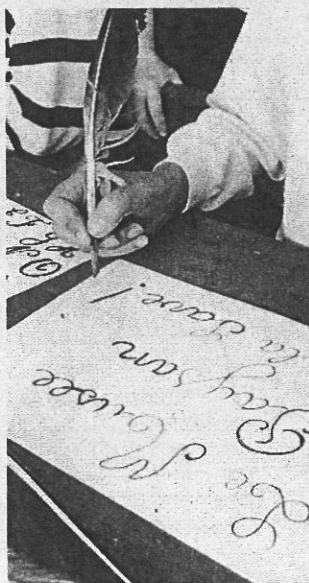 Le Musee
Paysan
la Save!